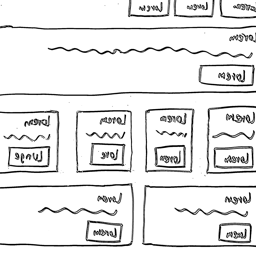 Lorem Lorem Lorem
Lorem
Lorem
Lorem Lorem Lorem Lorem
Lorem Lorem
Lorem Lorem
Lorem Lorem